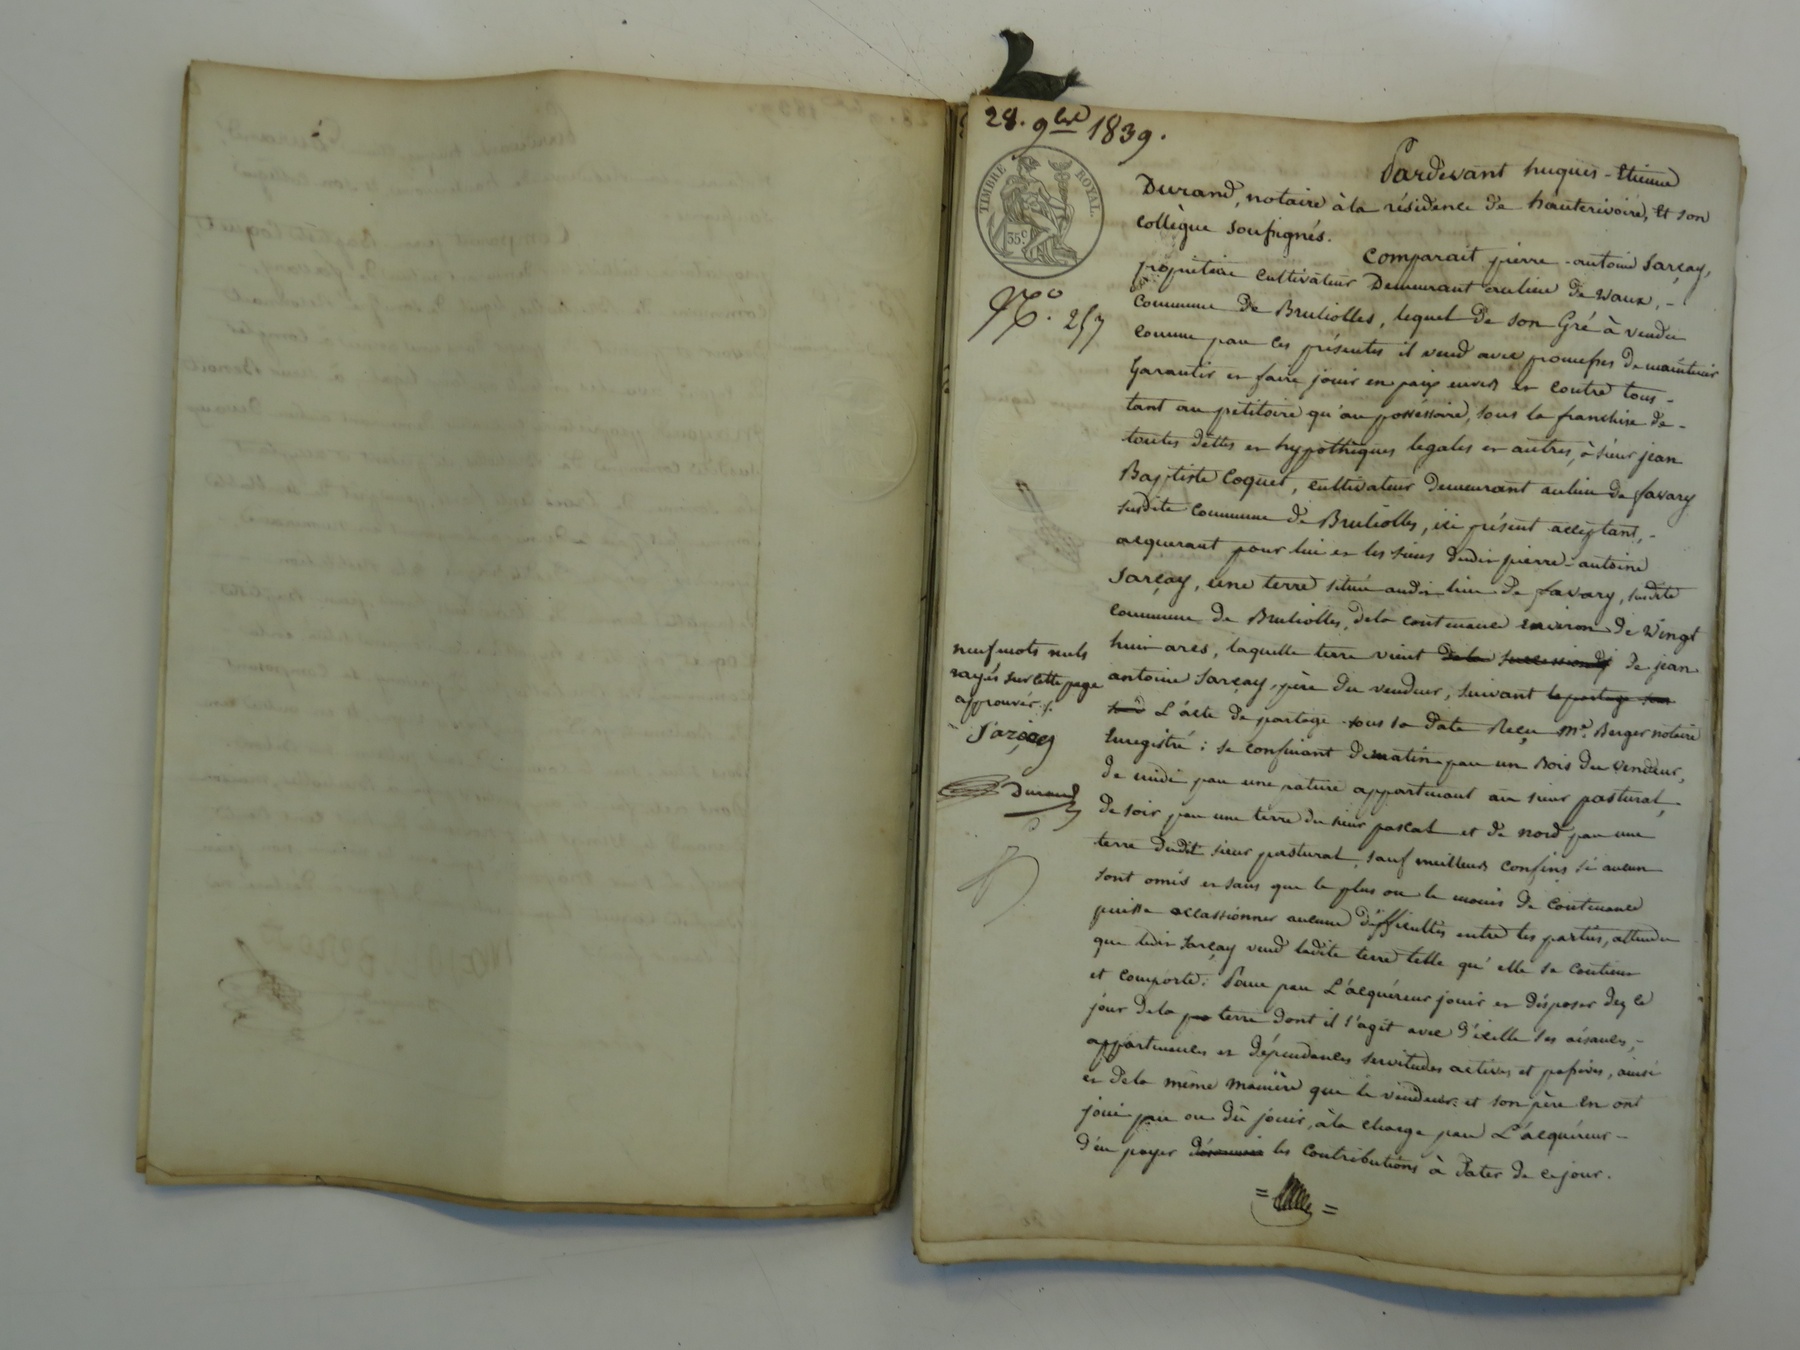 28. 9bre 1839.
TIMBRE ROYAL.
35c
No. 257
Pardevant hugues-Etienne
Durand, notaire à la résidence de hauterivoire, Et son
collègue soussignés.
Comparait pierre-antoine Sarçay,
propriétaire cultivateur Demeurant au lieu de Vaux, -
Commune De Brulliolles, lequel De son Gré à vendu
comme par ces présentes il vend avec promesses De maintenir
Garantir et faire jouir en paix envers et contre tous -
tant au pétitoire qu'au possessoire, sous la franchise de -
toutes dettes et hypothèques légales et autres, à sieur jean
Baptiste Coquet, cultivateur demeurant au lieu de favary
susdite Commune de Brulliolles, ici présent acceptant, -
acquerant pour lui et les siens dudit pierre-antoine
Sarçay, une terre située audit lieu de favary, susdite
Commune de Brulliolles, de la contenance environ de vingt
huit ares, laquelle terre vient de la succession de jean
antoine Sarçay, père du vendeur, suivant le partage
L'acte de partage sous sa date Reçu Me. Berger notaire
Enregistré ; se confinant de matin par un Bois du vendeur,
de midi par une pature appartenant au sieur pastural,
de soir par une terre du sieur pascal et de nord par une
terre dudit sieur pastural, sauf meilleurs confins si aucun
sont omis et sans que le plus ou le moins de contenance
puisse occassionner aucune difficultés entre les parties, attendu
que ledit Sarçay vend ladite terre telle qu'elle se contient
et comporte : Pour par L'acquéreur jouir et disposer dez ce
jour de la terre dont il s'agit avec d'icelle ses aisances, -
appartenances et dépendances servitudes actives et passives, ainsi
et de la même manière que le vendeur et son père en ont
joui pu ou dû jouir, à la charge par L'acquéreur -
d'en payer désormais les contributions à dater de ce jour.
neuf mots nuls
rayés sur cette page
approuvés ./.
Sarçay
Durand